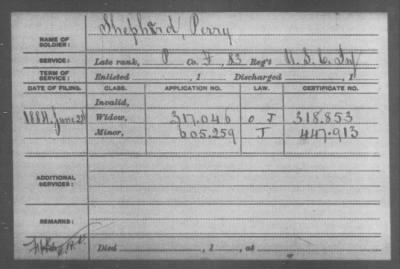 NAME OF SOLDIER: Shephard, Perry
SERVICE: Late rank, P Co. F, 83 Reg't U.S.C. Inf
TERM OF SERVICE: Enlisted , 1 Discharged , 1
DATE OF FILING. CLASS. APPLICATION NO. LAW. CERTIFICATE NO.
Invalid,
1884, June 28 Widow, 317.046 O J 318.853
Minor, 605.259 J 447.913
ADDITIONAL SERVICES:
REMARKS:
Died , 1 , at